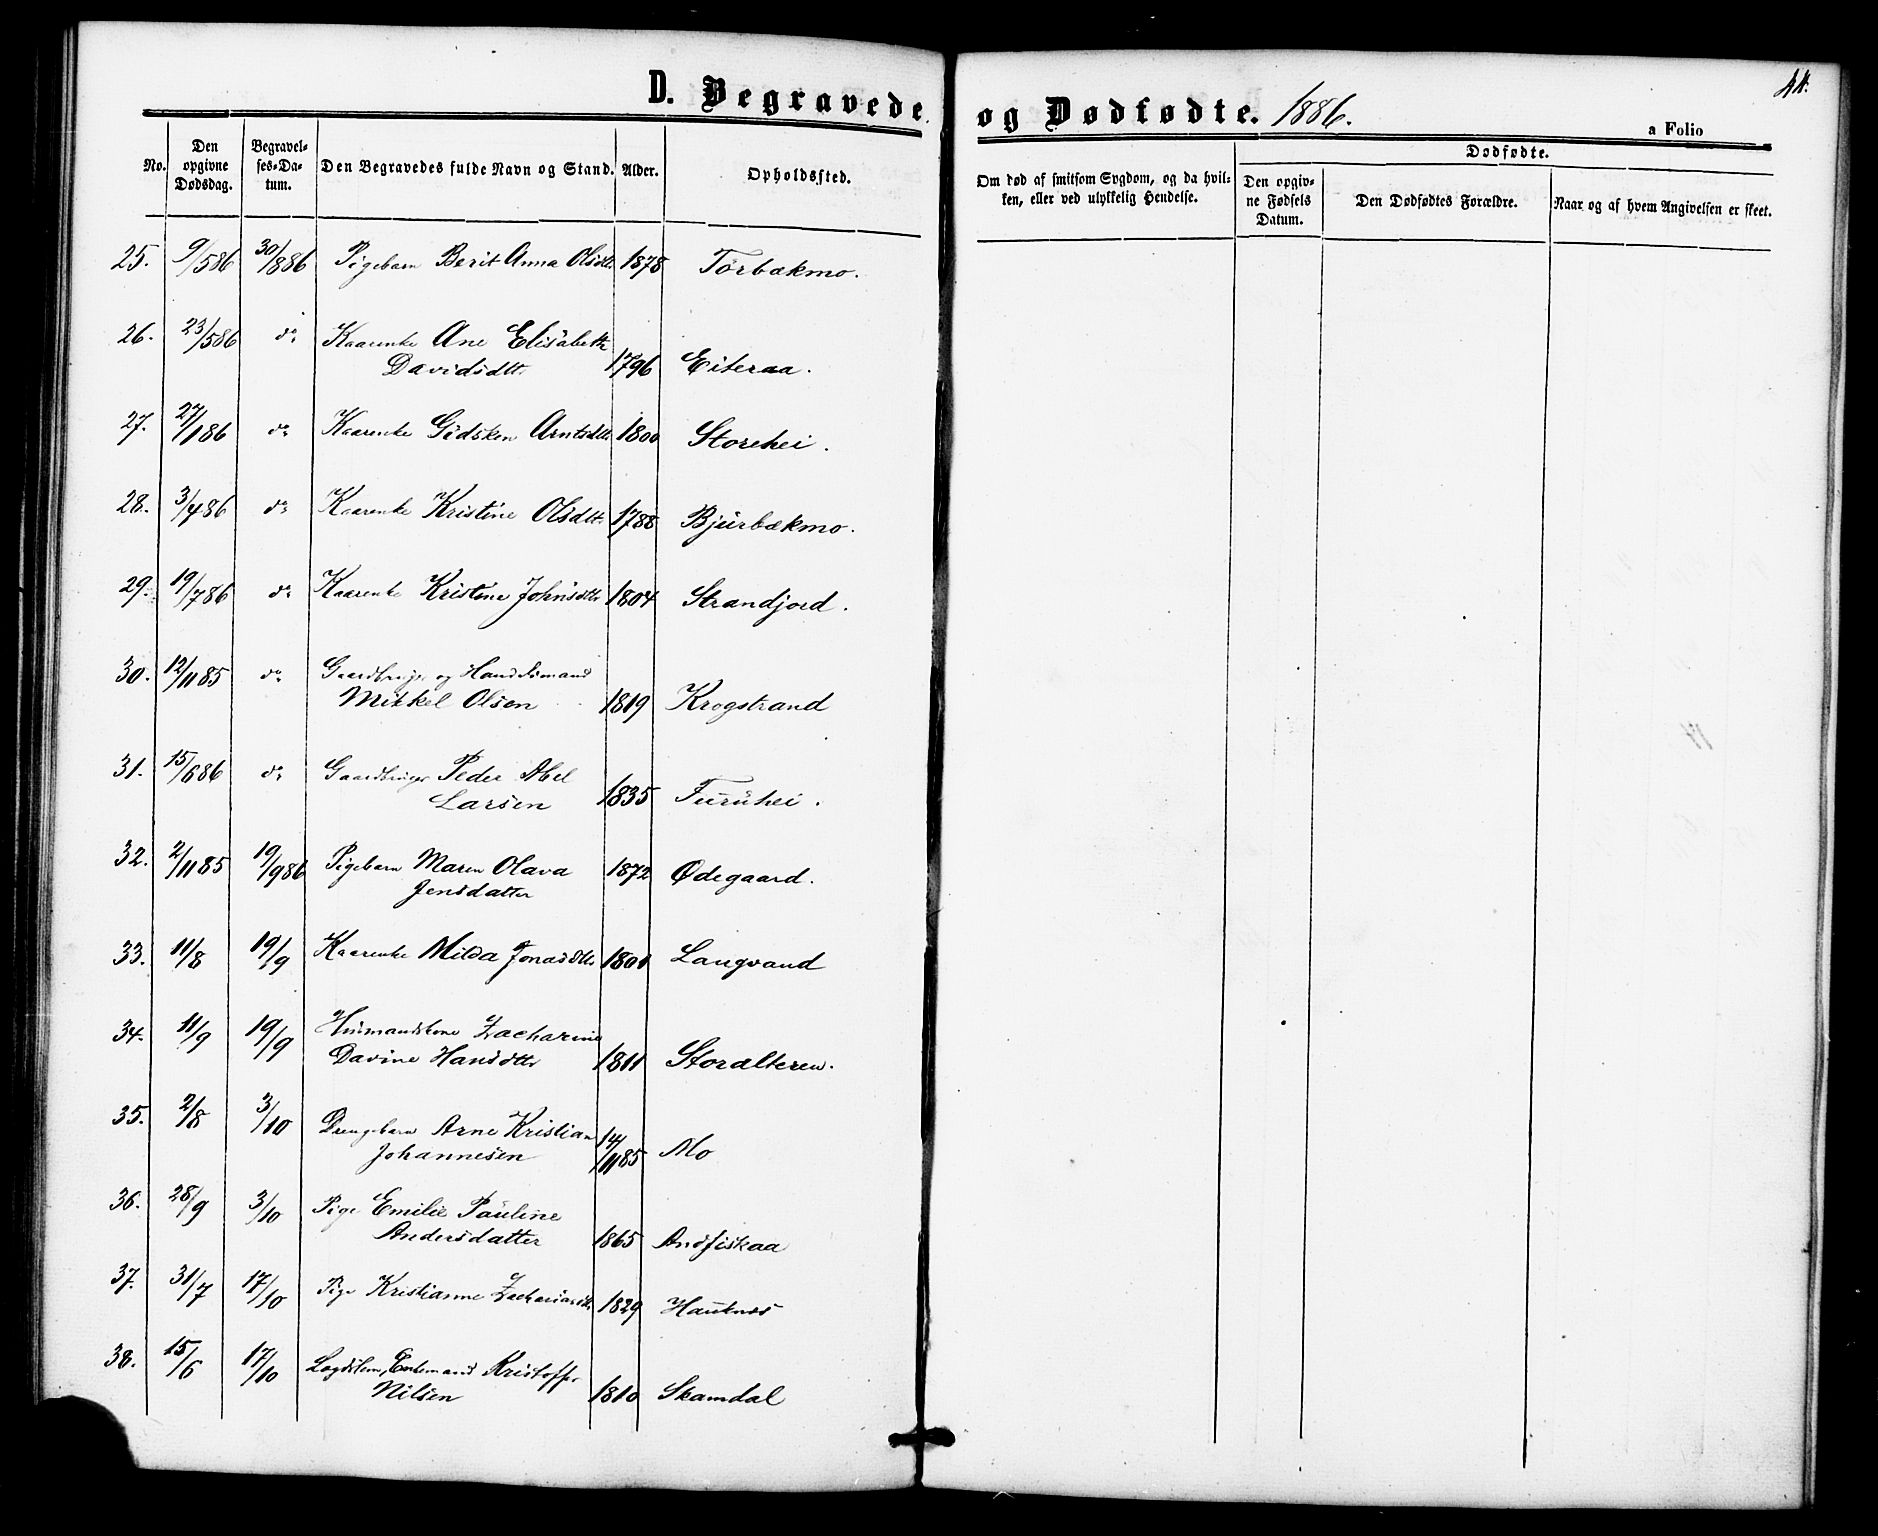 D. Begravede og Dødfødte. 1886.
44.
a Folio
No.
Den opgivne Dødsdag.
Begravelses-Datum.
Den Begravedes fulde Navn og Stand.
Alder.
Opholdssted.
Om død af smitsom Sygdom, og da hvilken, eller ved ulykkelig Hendelse.
Dødfødte.
Den opgivne Fødsels Datum.
Den Dødfødtes Forældre.
Naar og af hvem Angivelsen er skeet.
25. 9/586 30/886 Pigebarn Berit Anna Olsdtr. 1878 Tørbækmo.
26. 23/586 do Kaarenke Ane Elisabeth
Davidsdtr. 1796 Eiteraa.
27. 27/186 do Kaarenke Gidsken Arntsdtr 1800 Storehei.
28. 3/486 do Kaarenke Kristine Olsdtr. 1788 Bjurbækmo.
29. 19/786 do Kaarenke Kristine Johnsdtr 1804 Strandjord.
30. 12/1185 do Gaardbruger og Handelsmand
Mikkel Olsen 1819 Krogstrand
31. 15/686 do Gaardbruger Peder Abel
Larsen 1835 Furuhei.
32. 2/1185 19/986 Pigebarn Maren Olava
Jensdatter 1872 Ødegaard.
33. 11/8 19/9 Kaarenke Milda Jonasdtr 1801 Langvand
34. 11/9 19/9 Husmandskone Zacharine
Davine Hansdtr 1811 Storalteren.
35. 2/8 3/10 Drengebarn Arne Kristian
Johannesen 14/1185 Mo
36. 28/9 3/10 Pige Emilie Pauline
Andersdatter 1865 Andfiskaa
37. 31/7 17/10 Pige Kristianne Zachariasdtr 1829 Hauknes
38. 15/6 17/10 Lægdslem, Enkemand Kristoffer
Nilsen 1810 Skamdal